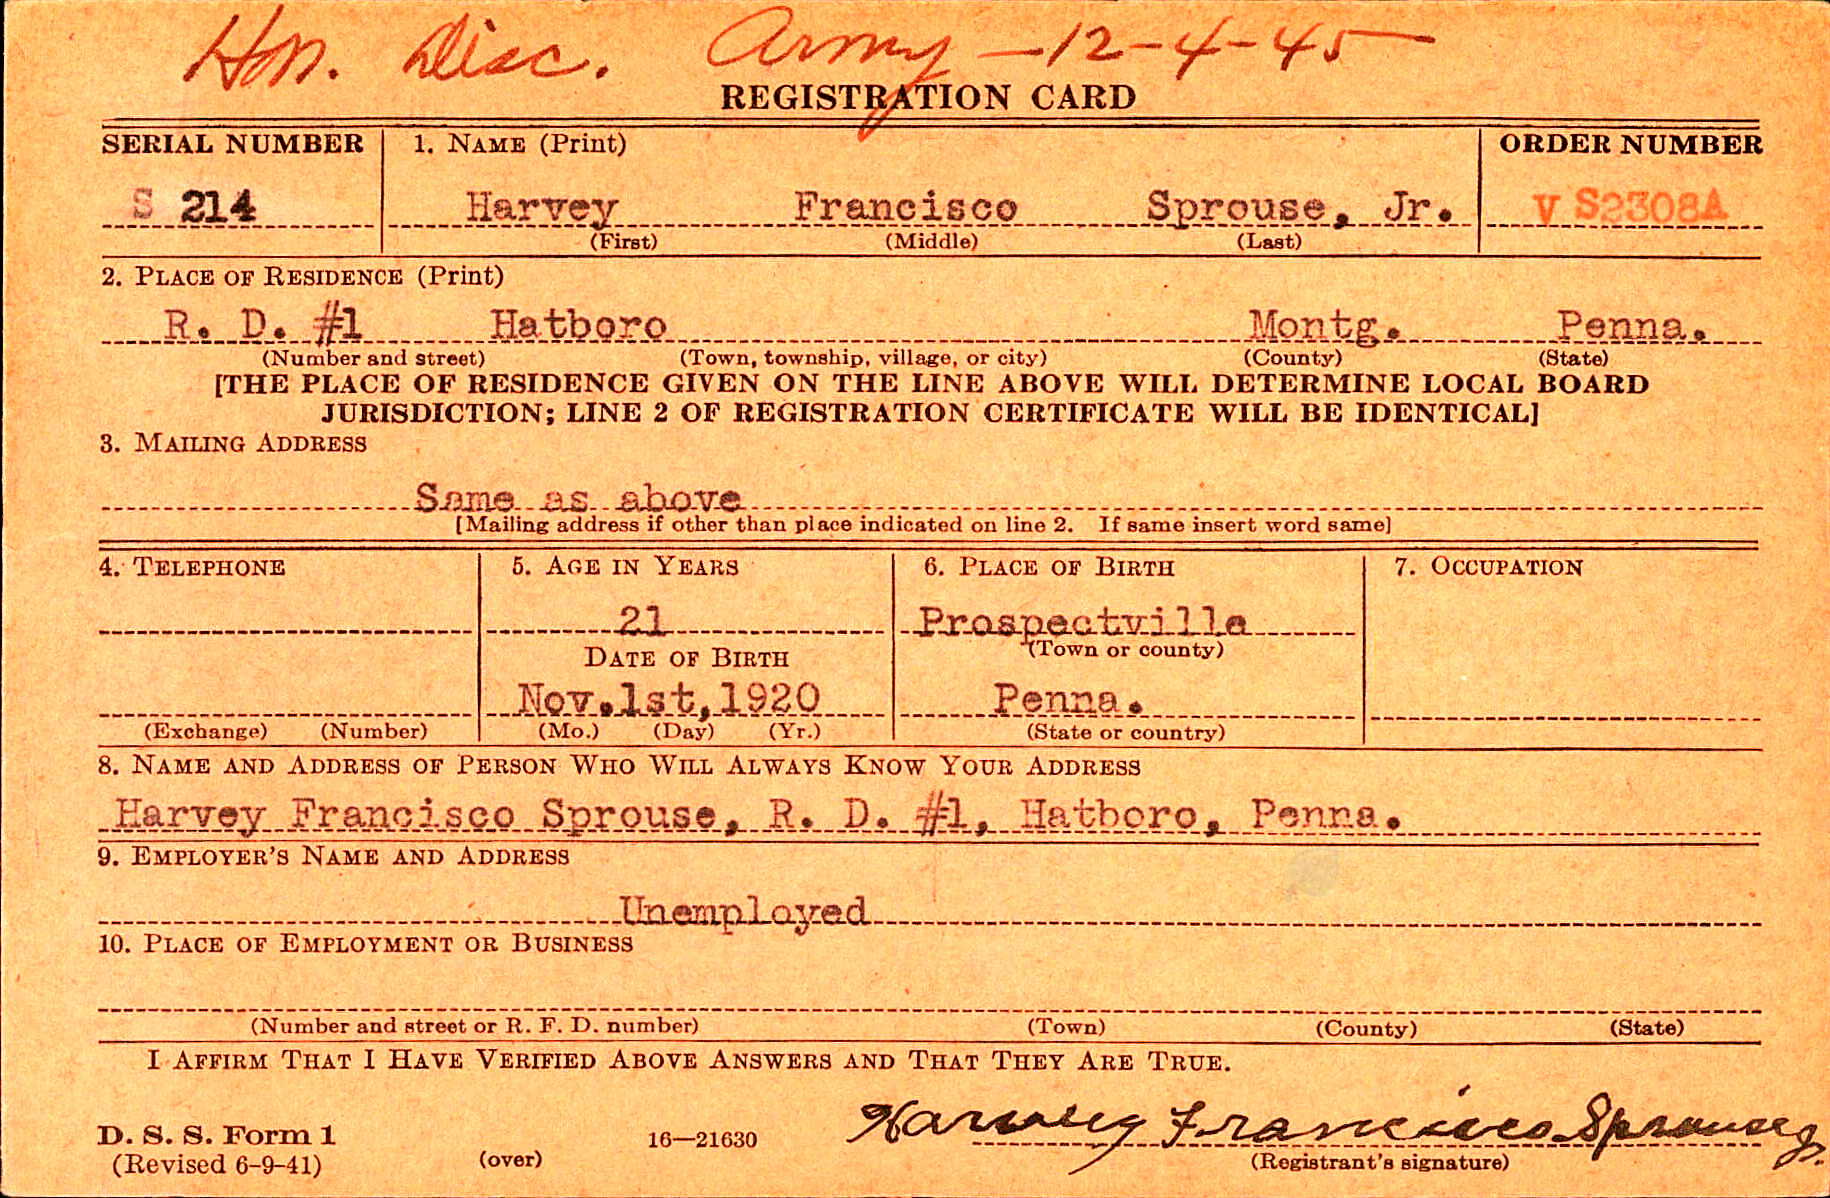 Hon. Disc. Army - 12-4-45
REGISTRATION CARD
SERIAL NUMBER 1. NAME (Print) ORDER NUMBER
S 214 Harvey Francisco Sprouse, Jr. V S2308A
(First) (Middle) (Last)
2. PLACE OF RESIDENCE (Print)
R. D. #1 Hatboro Montg. Penna.
(Number and street) (Town, township, village, or city) (County) (State)
[THE PLACE OF RESIDENCE GIVEN ON THE LINE ABOVE WILL DETERMINE LOCAL BOARD
JURISDICTION; LINE 2 OF REGISTRATION CERTIFICATE WILL BE IDENTICAL]
3. MAILING ADDRESS
Same as above
[Mailing address if other than place indicated on line 2. If same insert word same]
4. TELEPHONE 5. AGE IN YEARS 6. PLACE OF BIRTH 7. OCCUPATION
21 Prospectville
DATE OF BIRTH (Town or county)
Nov.1st,1920 Penna.
(Exchange) (Number) (Mo.) (Day) (Yr.) (State or country)
8. NAME AND ADDRESS OF PERSON WHO WILL ALWAYS KNOW YOUR ADDRESS
Harvey Francisco Sprouse, R. D. #1, Hatboro, Penna.
9. EMPLOYER'S NAME AND ADDRESS
Unemployed
10. PLACE OF EMPLOYMENT OR BUSINESS
(Number and street or R. F. D. number) (Town) (County) (State)
I AFFIRM THAT I HAVE VERIFIED ABOVE ANSWERS AND THAT THEY ARE TRUE.
Harvey Francisco Sprouse Jr.
D. S. S. Form 1 16—21630
(Revised 6-9-41) (over) (Registrant's signature)